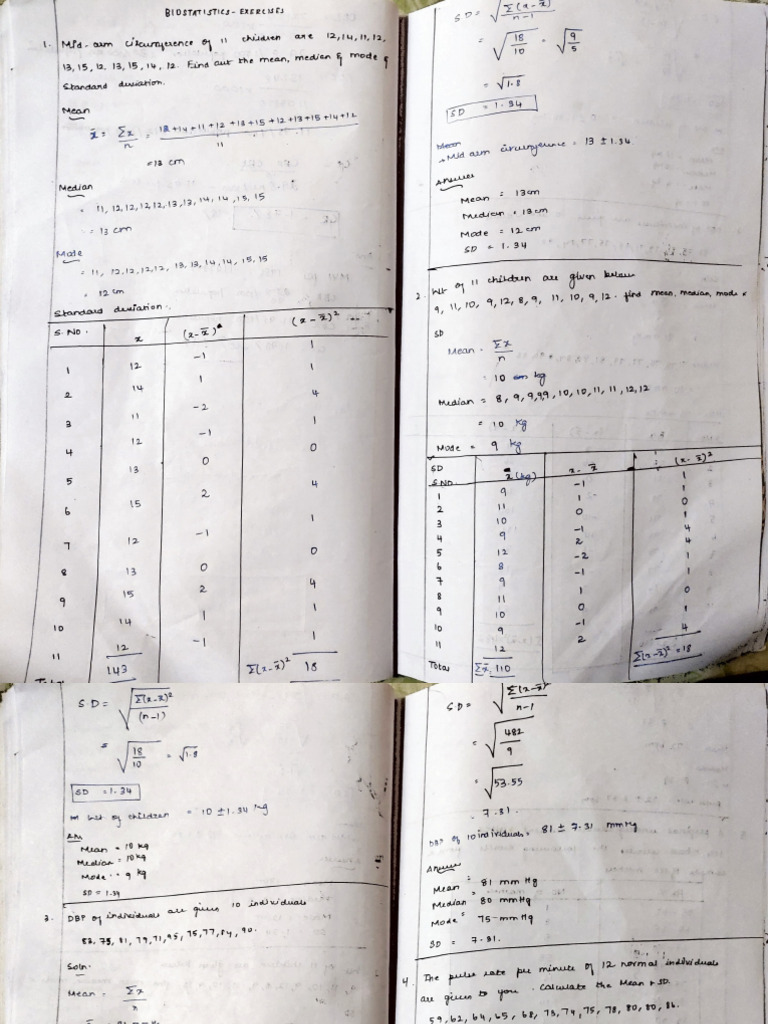 BIOSTATISTICS - EXERCISES
1. Mid-arm circumference of 11 children are 12, 14, 11, 12,
13, 15, 12, 13, 15, 14, 12. Find out the mean, median & mode &
Standard deviation.
Mean
x̄ = Σx/n = 12+14+11+12+13+15+12+13+15+14+12 / 11
= 13 cm
Median
= 11, 12, 12, 12, 12, 13, 13, 14, 14, 15, 15
= 13 cm
Mode
= 11, 12, 12, 12, 12, 13, 13, 14, 14, 15, 15
= 12 cm
Standard deviation.
S.No. x (x-x̄) (x-x̄)²
1 12 -1 1
2 14 1 1
3 11 -2 4
4 12 -1 1
5 13 0 0
6 15 2 4
7 12 -1 1
8 13 0 0
9 15 2 4
10 14 1 1
11 12 -1 1
143 Σ(x-x̄)² 18
SD = √Σ(x-x̄)/n-1
= √18/10 = √9/5
= √1.8
SD = 1.34
Mean
Mid arm circumference = 13 ± 1.34
Answer
Mean = 13cm
Median = 13cm
Mode = 12 cm
SD = 1.34
2. Wt of 11 children are given below
9, 11, 10, 9, 12, 8, 9, 11, 10, 9, 12. find mean, median, mode &
SD
Mean = Σx/n
= 10 kg
Median = 8, 9, 9, 9, 9, 10, 10, 11, 11, 12, 12
= 10 kg
Mode = 9 kg
SD
S.NO. x (kg) x-x̄ (x-x̄)²
1 9 -1 1
2 11 1 1
3 10 0 0
4 9 -1 1
5 12 2 4
6 8 -2 4
7 9 -1 1
8 11 1 1
9 10 0 0
10 9 -1 1
11 12 2 4
Total Σx 110 Σ(x-x̄)² = 18
S.D = √Σ(x-x̄)²/(n-1)
= √18/10 = √1.8
SD = 1.34
Wt of children = 10 ± 1.34 kg
Ans
Mean = 10 kg
Median = 10kg
Mode = 9 kg
SD = 1.34
3. DBP of individuals are given 10 individuals
83, 75, 81, 79, 71, 95, 75, 77, 84, 90.
Soln.
Mean = Σx/n
S.D = √Σ(x-x̄)²/n-1
= √482/9
= √53.55
= 7.31.
DBP of 10 individuals = 81 ± 7.31 mmHg
Answer
Mean = 81 mm Hg
Median = 80 mmHg
Mode = 75 mmHg
SD = 7.31.
4. The pulse rate per minute of 12 normal individuals
are given to you. Calculate the Mean & SD.
59, 62, 64, 65, 68, 73, 74, 75, 78, 80, 80, 86.